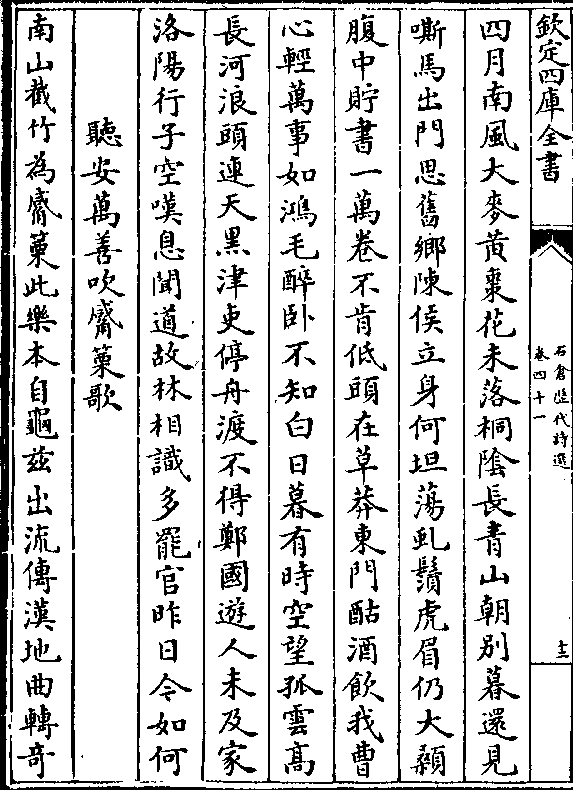 欽定四庫全書
石倉歷代詩選
卷四十一
四月南風大麥黄棗花未落桐隂長青山朝别暮還見
嘶馬出門思舊鄉陳侯立身何坦蕩虬鬚虎眉仍大顙
腹中貯書一萬卷不肯低頭在草莽東門酤酒飲我曹
心輕萬事如鴻毛醉卧不知白日暮有時空望孤雲高
長河浪頭連天黑津吏停舟渡不得鄭國遊人未及家
洛陽行子空嘆息聞道故林相識多罷官昨日今如何
聽安萬善吹觱篥歌
南山截竹為觱篥此樂本自龜茲出流傳漢地曲轉奇